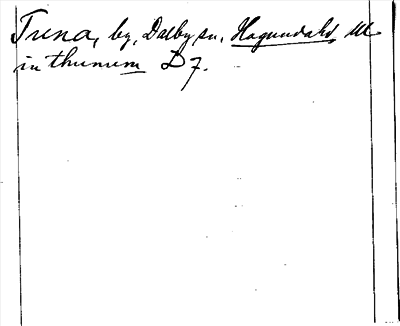 Tuna, by, Dalby sn, Hagunda hd, Ul.
in thunum D 7.